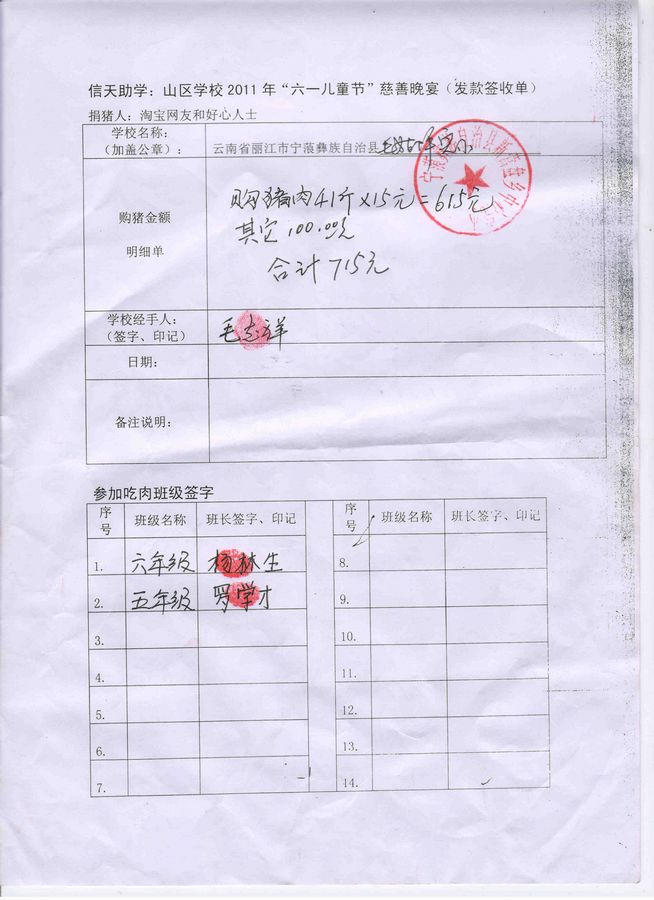 信天助学：山区学校2011年“六一儿童节”慈善晚宴（发款签收单）
捐猪人：淘宝网友和好心人士
学校名称：
（加盖公章）：
云南省丽江市宁蒗彝族自治县
购猪金额
明细单
购猪肉41斤×15元=615元
其它100.00元
合计715元
学校经手人：
（签字、印记）
毛志祥
日期：
备注说明：
参加吃肉班级签字
序号 班级名称 班长签字、印记 序号 班级名称 班长签字、印记
1. 六年级 杨林生 8.
2. 五年级 罗学才 9.
3. 10.
4. 11.
5. 12.
6. 13.
7. 14.